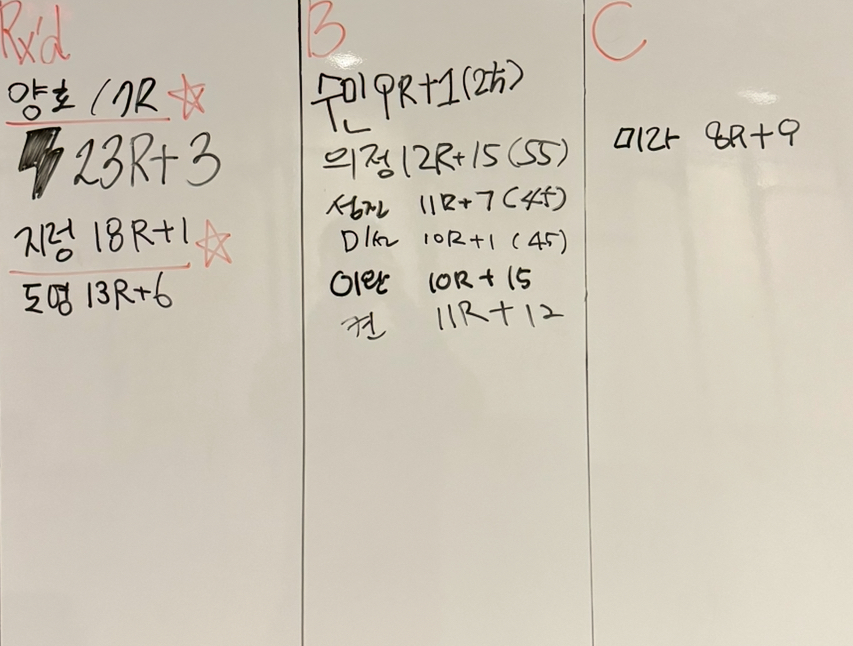 Rx'd
양호 17R
23R+3
지렁 18R+1
도영 13R+6
B
주민 9R+1
의정 12R+15 (55)
성진 11R+7 (45)
10R+1 (45)
이완 10R+15
켠 11R+12
C
미라 8R+9